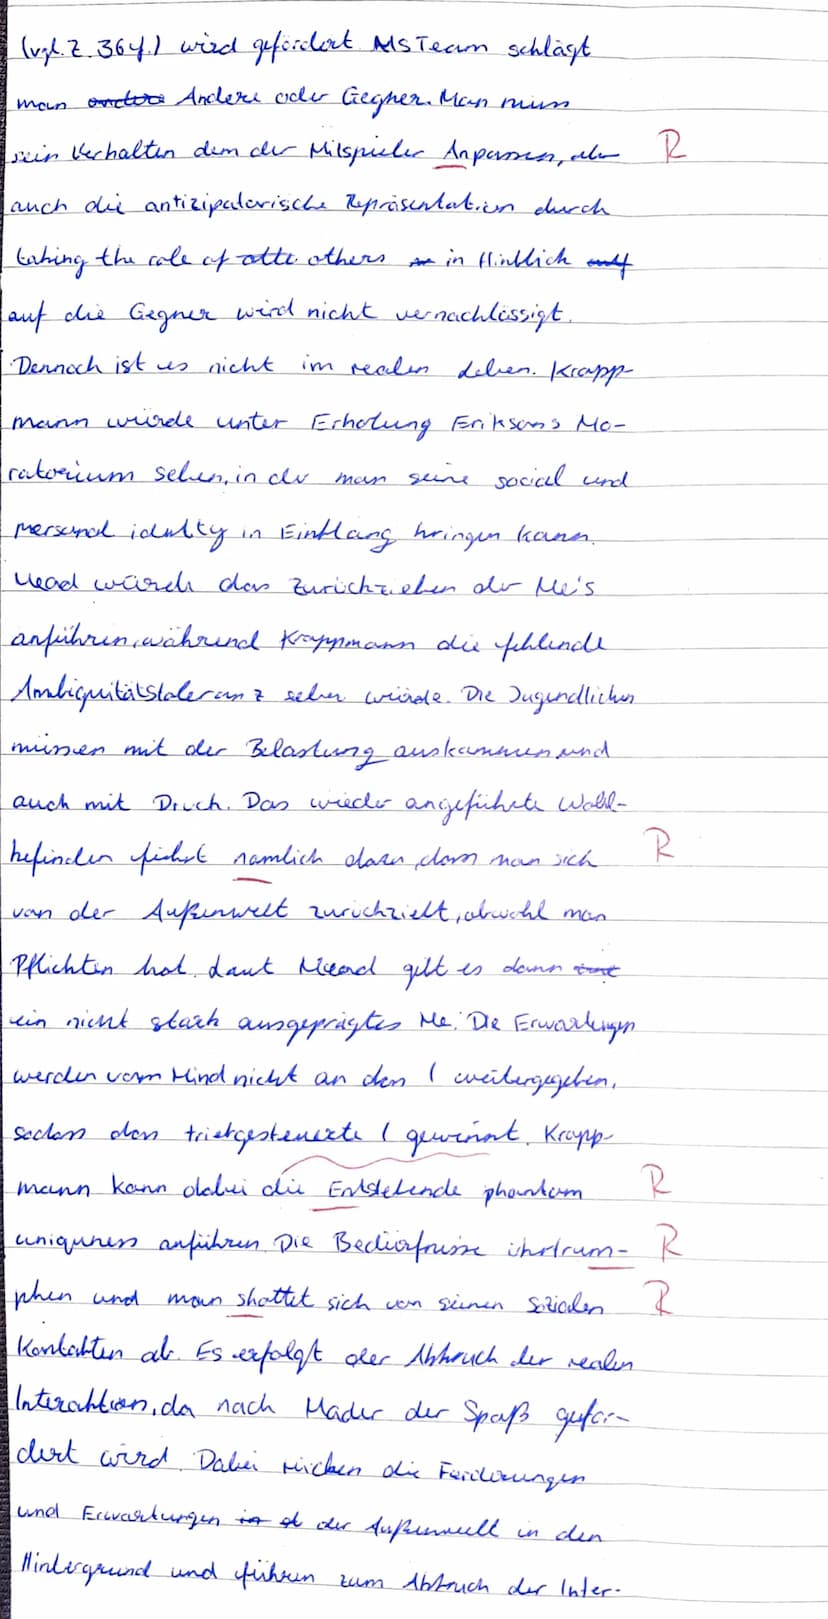 (vgl. Z. 36f.) wird gefördert. Als Team schlägt
man andere Andere oder Gegner. Man muss
sein Verhalten dem der Mitspieler Anpassen, aber R
auch die antizipatorische Repräsentation durch
taking the role of others in Hinblick auf
auf die Gegner wird nicht vernachlässigt.
Dennoch ist es nicht im realen Leben. Krapp-
mann würde unter Erholung Eriksons Mo-
ratorium sehen, in der man seine social und
personal identity in Einklang bringen kann.
Mead würde das Zurückziehen der Me's
anführen, während Krappmann die fehlende
Ambiguitätstoleranz sehen würde. Die Jugendlichen
müssen mit der Belastung auskommen und
auch mit Druck. Das wieder angeführte Wohl-
befinden führt namlich dazu, dass man sich R
von der Außenwelt zurückzieht, obwohl man
Pflichten hat. Laut Mead gibt es dann
ein nicht stark ausgeprägtes Me. Die Erwartungen
werden vom Mind nicht an das I weitergegeben,
sodass das triebgesteuerte I gewinnt. Krapp-
mann kann dabei die Entstehende phantom R
uniqueness anführen. Die Bedürfnisse übertrum- R
phen und man shottet sich von seinen sozialen R
Kontakten ab. Es erfolgt der Abbruch der realen
Interaktion, da nach Mader der Spaß geför-
dert wird. Dabei rücken die Forderungen
und Erwartungen in d der Außenwelt in den
Hintergrund und führen zum Abbruch der Inter-